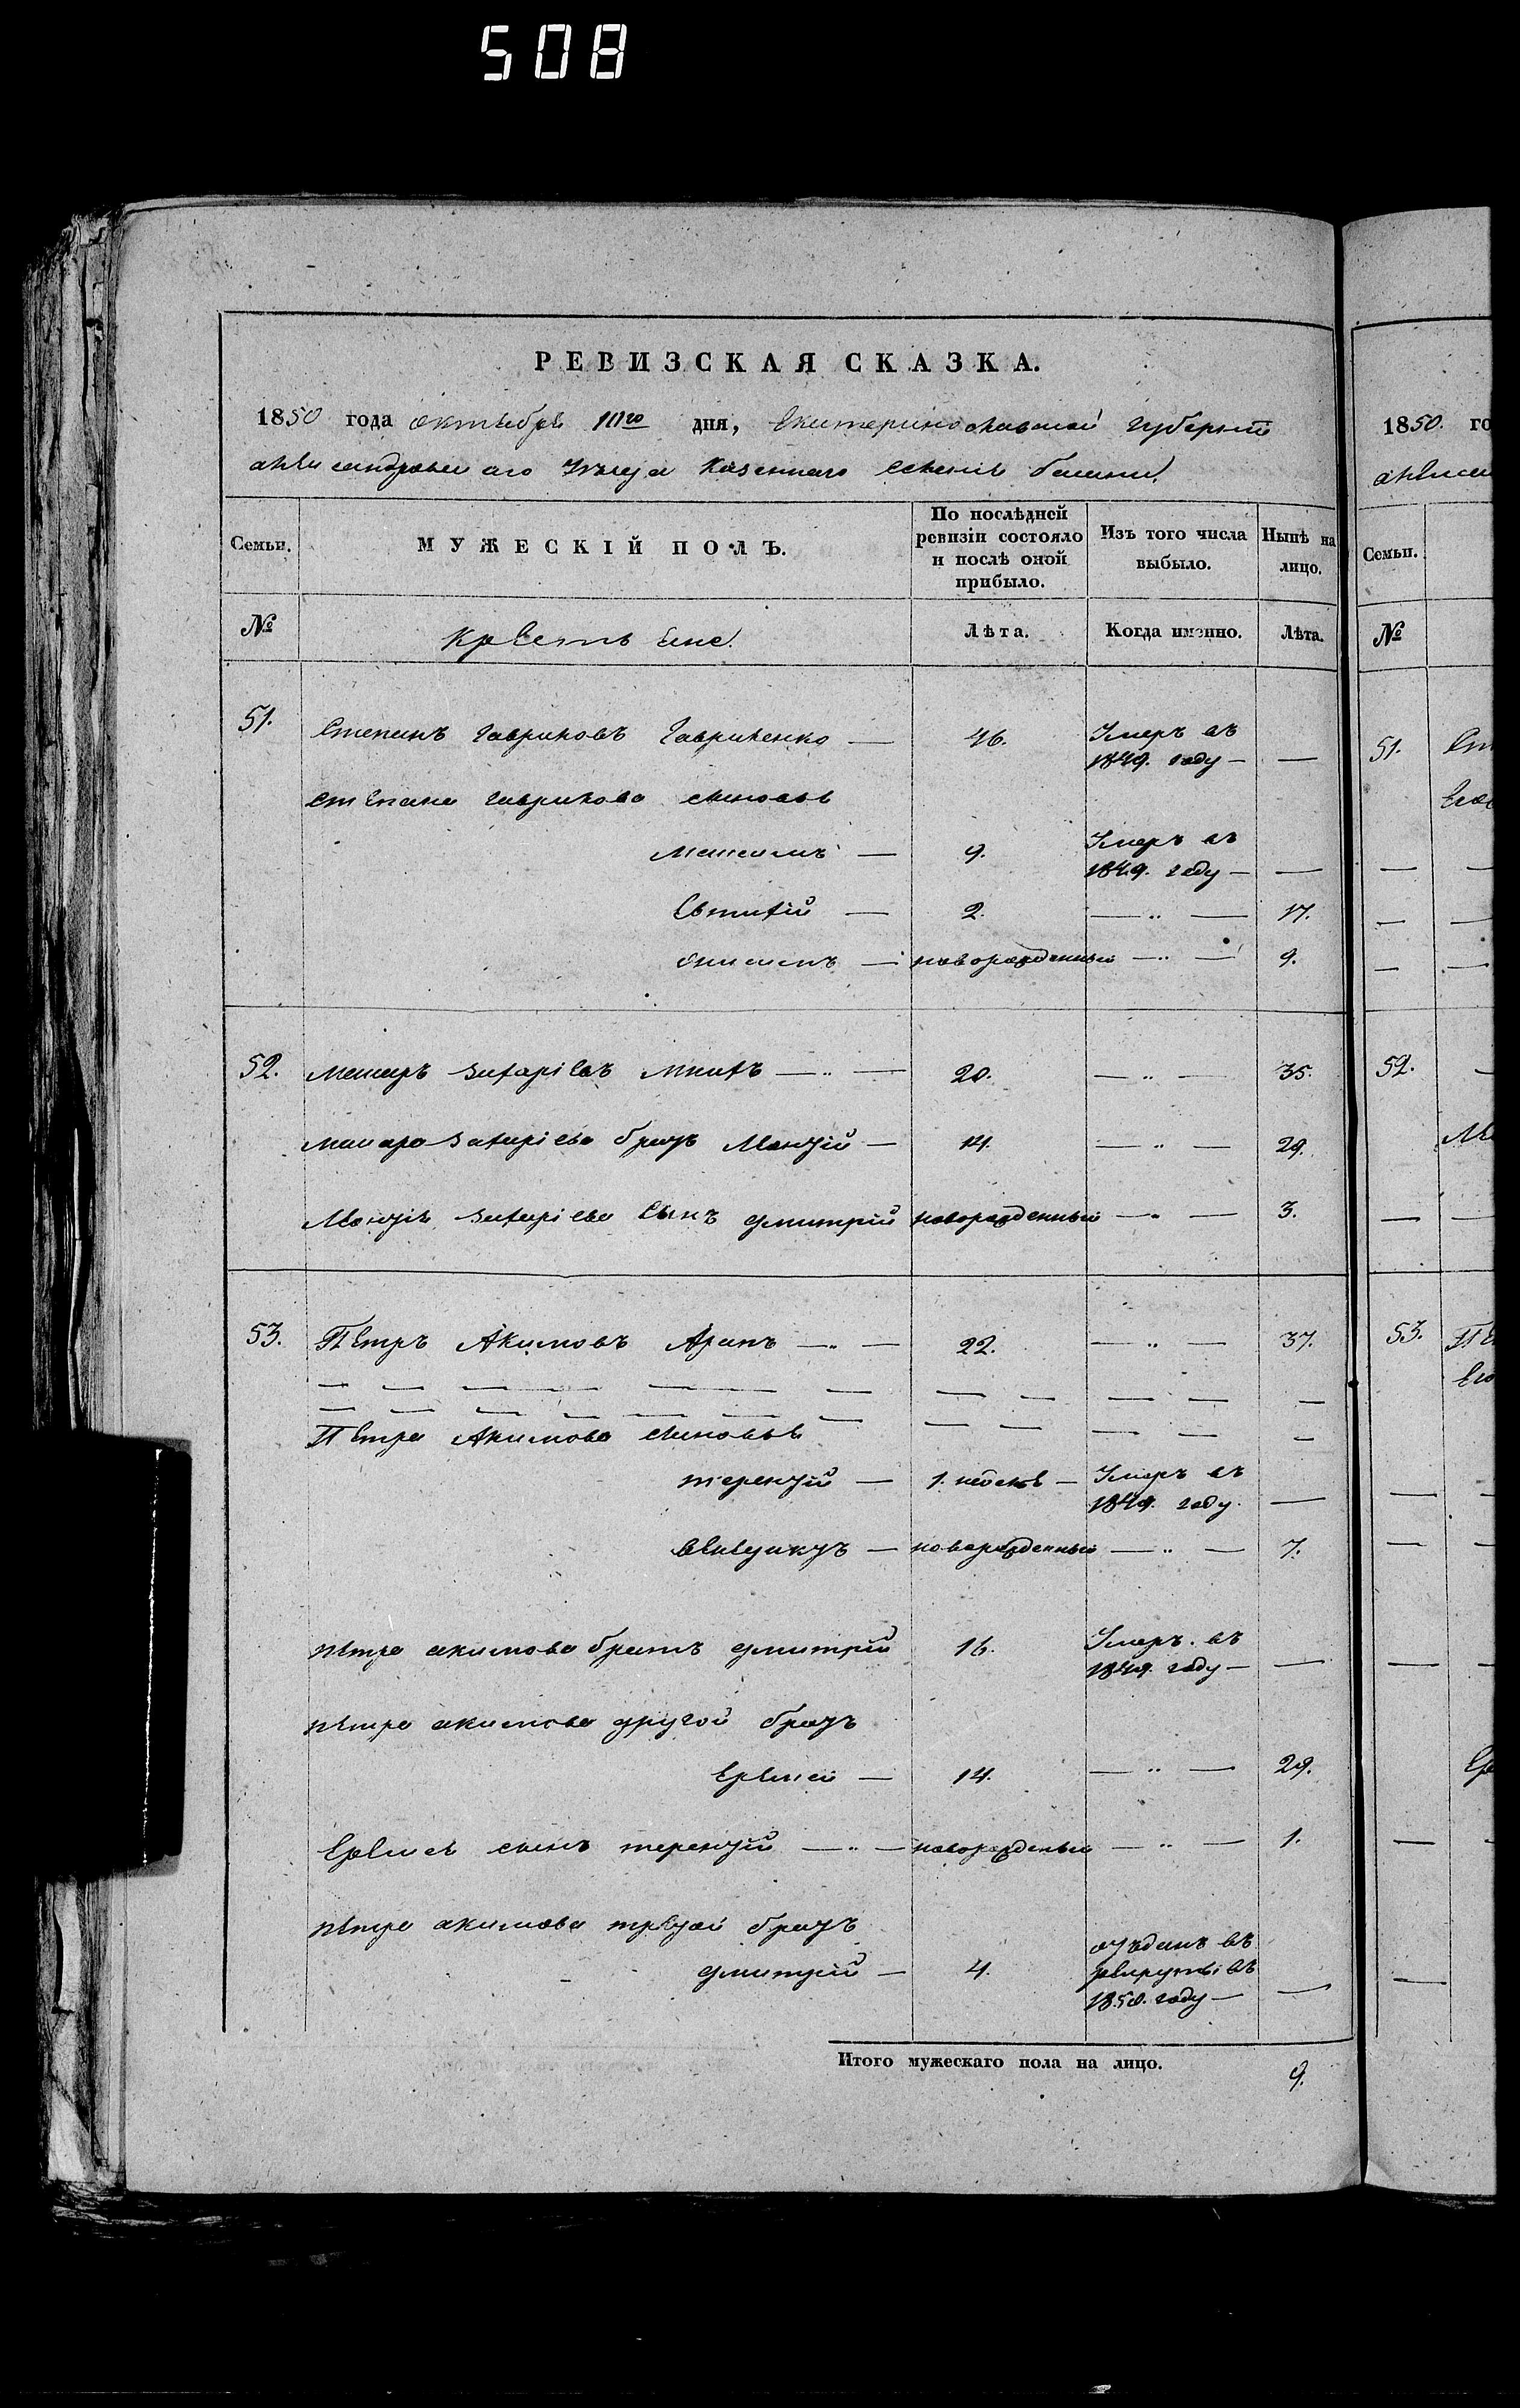 508
РЕВИЗСКАЯ СКАЗКА.
1850 года октября 10го дня, Екатеринославской губернии
александровскаго уезда казеннаго селения
Семьи.
МУЖЕСКІЙ ПОЛЪ.
По послѣдней ревизіи состояло и послѣ оной прибыло.
Изъ того числа выбыло.
Нынѣ на лицо.
№
крестьяне.
Лѣта.
Когда именно.
Лѣта.
51. Степанъ гавриловъ Гавриленко — 46. Умеръ въ 1849. году — —
степана гаврилова сыновья
Максимъ — 9. Умеръ въ 1849. году — —
Евтифій — 2. — „ — 17.
— новорожденный — „ — 9.
52. Макаръ захаріевъ — „ — 20. — „ — 35.
макара захаріева братъ Леонтій — 14. — „ — 29.
Леонтія захаріева сынъ дмитрій новорожденный — „ — 3.
53. Петръ Акимовъ — „ — 22. — „ — 37.
Петра Акимова сыновья
терентій — 1. недели — Умеръ въ 1849. году. —
— новорожденный — „ — 7.
петра акимова братъ дмитрій 16. Умеръ. въ 1849. году — —
петра акимова другой братъ
Еремей — 14. — „ — 29.
Еремея сынъ терентій — „ — новорожденный — „ — 1.
петра акимова третій братъ
дмитрій — 4. отъданъ въ рекруты въ 1850. году — —
Итого мужескаго пола на лицо. 9.
1850. го
Семьи.
№
51.
52.
53.